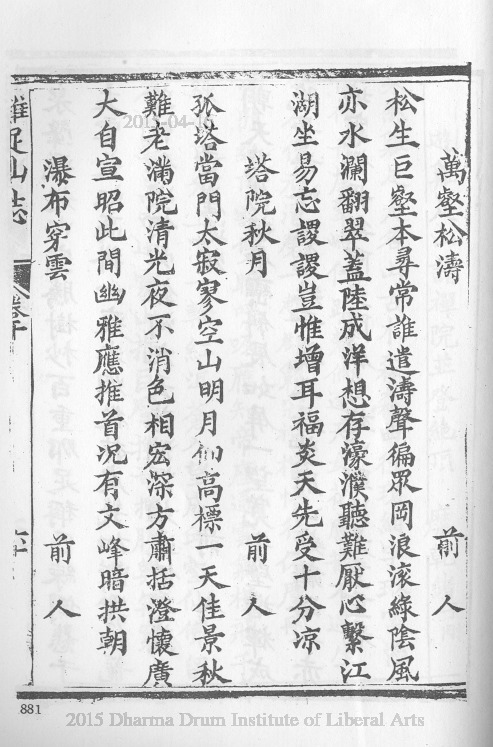 萬壑松濤 前人
松生巨壑本尋常誰遣濤聲徧眾岡浪滾綠陰風
亦水瀾翻翠蓋陸成洋想存濠濮聽難厭心繫江
湖坐易忘謖謖豈惟增耳福炎天先受十分凉
塔院秋月 前人
孤塔當門太寂寥空山明月高標一天佳景秋
難老滿院清光夜不消色相宏深方肅括澄懷廣
大自宣昭此間幽雅應推首況有文峰暗拱朝
瀑布穿雲 前人
雞足山志 卷十
881
2015-04-16
2015 Dharma Drum Institute of Liberal Arts